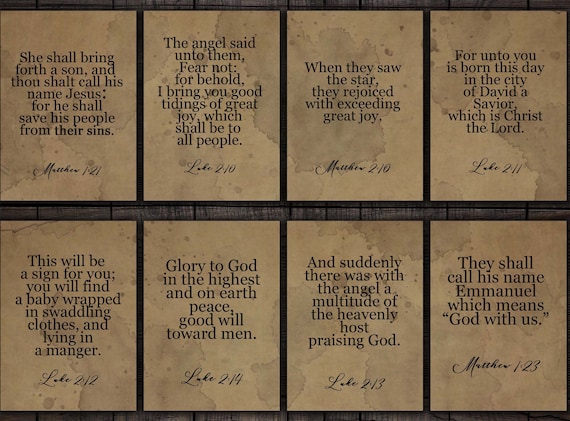 She shall bring
forth a son, and
thou shalt call his
name Jesus:
for he shall
save his people
from their sins.
Matthew 1:21
The angel said
unto them,
Fear not:
for behold,
I bring you good
tidings of great
joy, which
shall be to
all people.
Luke 2:10
When they saw
the star,
they rejoiced
with exceeding
great joy.
Matthew 2:10
For unto you
is born this day
in the city
of David a
Savior,
which is Christ
the Lord.
Luke 2:11
This will be
a sign for you;
you will find
a baby wrapped
in swaddling
clothes, and
lying in
a manger.
Luke 2:12
Glory to God
in the highest
and on earth
peace,
good will
toward men.
Luke 2:14
And suddenly
there was with
the angel a
multitude of
the heavenly
host
praising God.
Luke 2:13
They shall
call his name
Emmanuel
which means
“God with us.”
Matthew 1:23